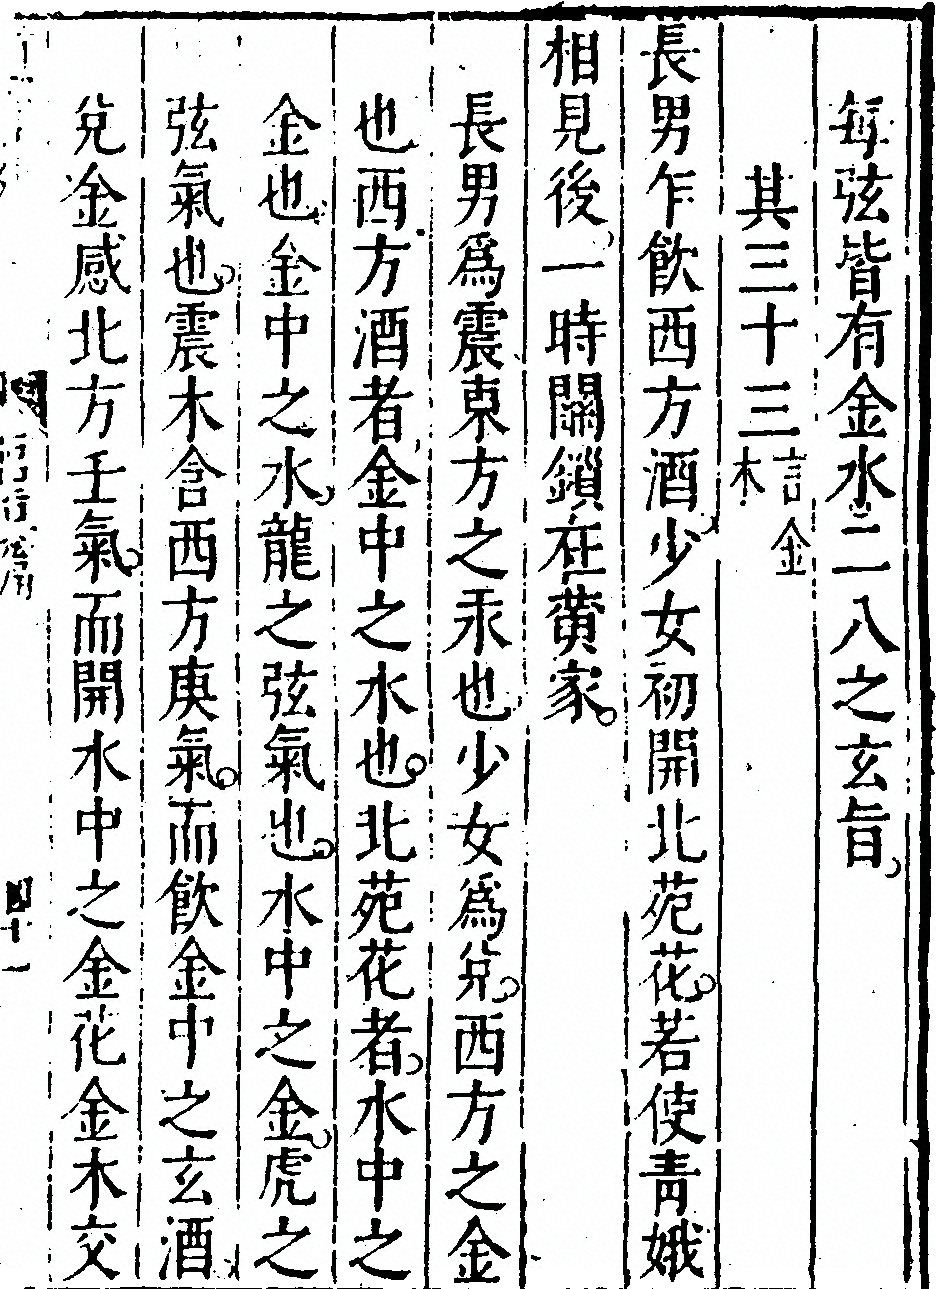 每弦皆有金水二八之玄旨
其三十三言金木
長男乍飲西方酒少女初開北苑花若使青娥
相見後一時關鎖在黃家
長男爲震東方之汞也少女爲兌西方之金
也西方酒者金中之水也北苑花者水中之
金也金中之水龍之弦氣也水中之金虎之
弦氣也震木含西方庚氣而飲金中之玄酒
兌金感北方壬氣而開水中之金花金木交